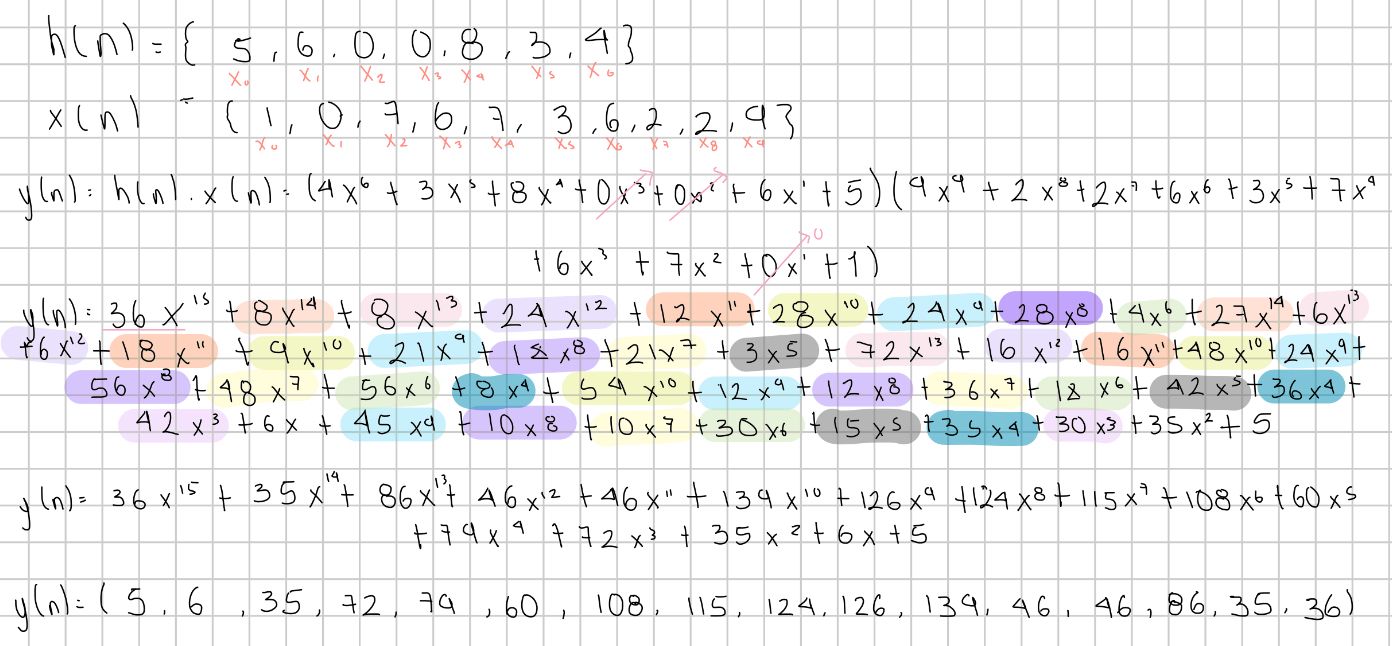 h(n) = { 5 , 6 , 0 , 0 , 8 , 3 , 4 }
x₀ x₁ x₂ x₃ x₄ x₅ x₆
x(n) = { 1 , 0 , 7 , 6 , 7 , 3 , 6 , 2 , 2 , 9 }
x₀ x₁ x₂ x₃ x₄ x₅ x₆ x₇ x₈ x₉
y(n) = h(n) . x(n) = (4x⁶ + 3x⁵ + 8x⁴ + 0x³ + 0x² + 6x¹ + 5)(9x⁹ + 2x⁸ + 2x⁷ + 6x⁶ + 3x⁵ + 7x⁴
+ 6x³ + 7x² + 0x¹ + 1) 0
y(n) = 36x¹⁵ + 8x¹⁴ + 8x¹³ + 24x¹² + 12x¹¹ + 28x¹⁰ + 24x⁹ + 28x⁸ + 4x⁶ + 27x¹⁴ + 6x¹³
+ 6x¹² + 18x¹¹ + 9x¹⁰ + 21x⁹ + 18x⁸ + 21x⁷ + 3x⁵ + 72x¹³ + 16x¹² + 16x¹¹ + 48x¹⁰ + 24x⁹ +
56x⁸ + 48x⁷ + 56x⁶ + 8x⁴ + 54x¹⁰ + 12x⁹ + 12x⁸ + 36x⁷ + 18x⁶ + 42x⁵ + 36x⁴ +
42x³ + 6x + 45x⁹ + 10x⁸ + 10x⁷ + 30x⁶ + 15x⁵ + 35x⁴ + 30x³ + 35x² + 5
y(n) = 36x¹⁵ + 35x¹⁴ + 86x¹³ + 46x¹² + 46x¹¹ + 139x¹⁰ + 126x⁹ + 124x⁸ + 115x⁷ + 108x⁶ + 60x⁵
+ 79x⁴ + 72x³ + 35x² + 6x + 5
y(n) = ( 5 , 6 , 35 , 72 , 79 , 60 , 108 , 115 , 124 , 126 , 139 , 46 , 46 , 86 , 35 , 36 )